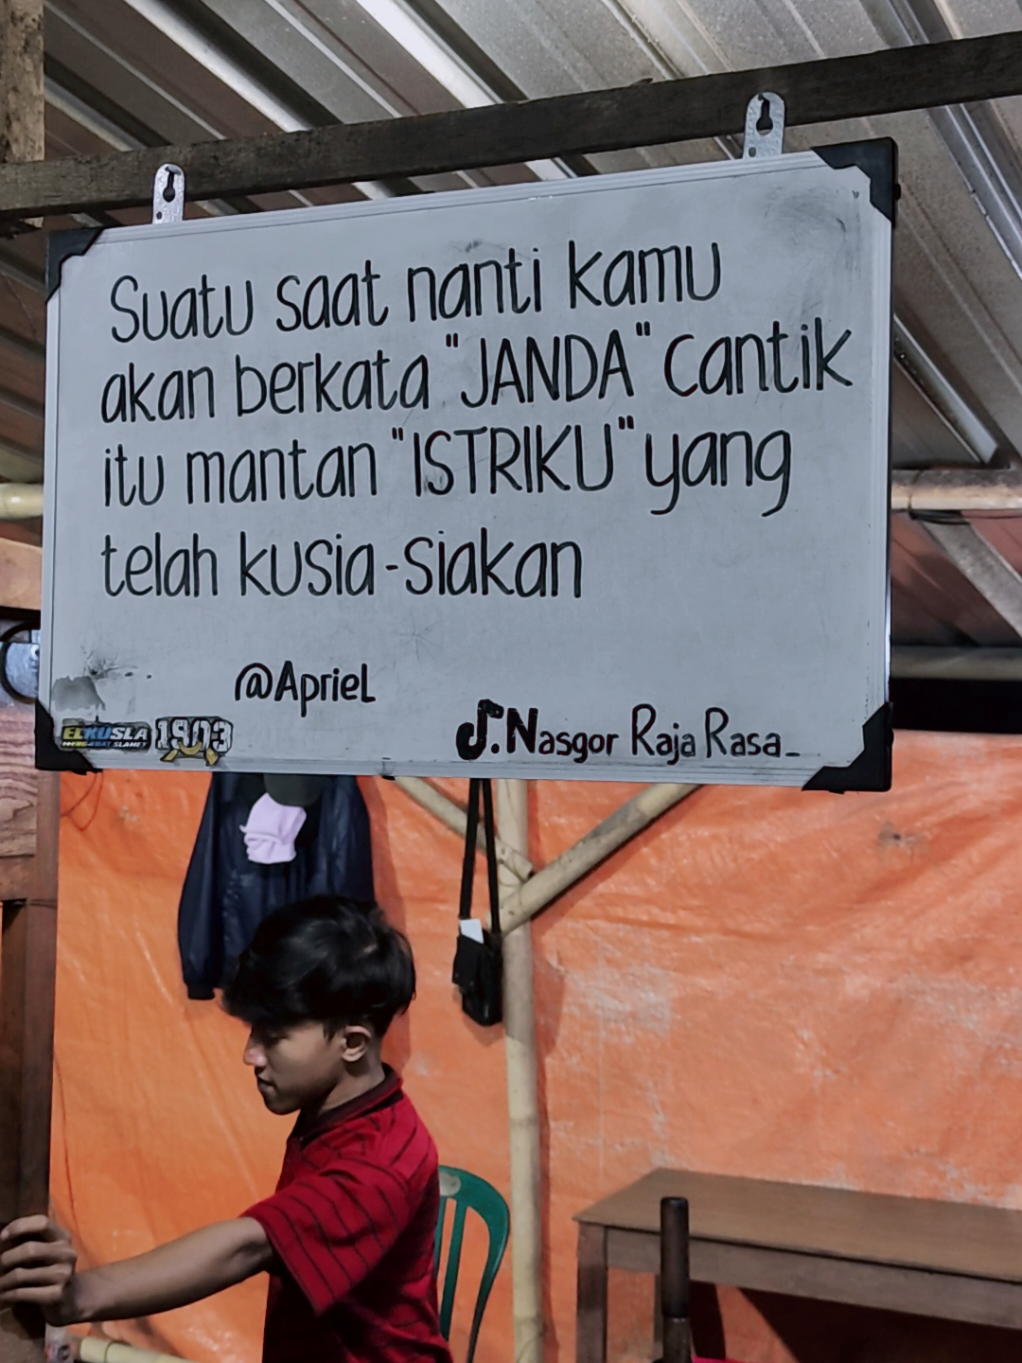 Suatu saat nanti kamu
akan berkata "JANDA" cantik
itu mantan "ISTRIKU" yang
telah kusia-siakan
@AprieL
Nasgor Raja Rasa_
ELKUSLA
1903